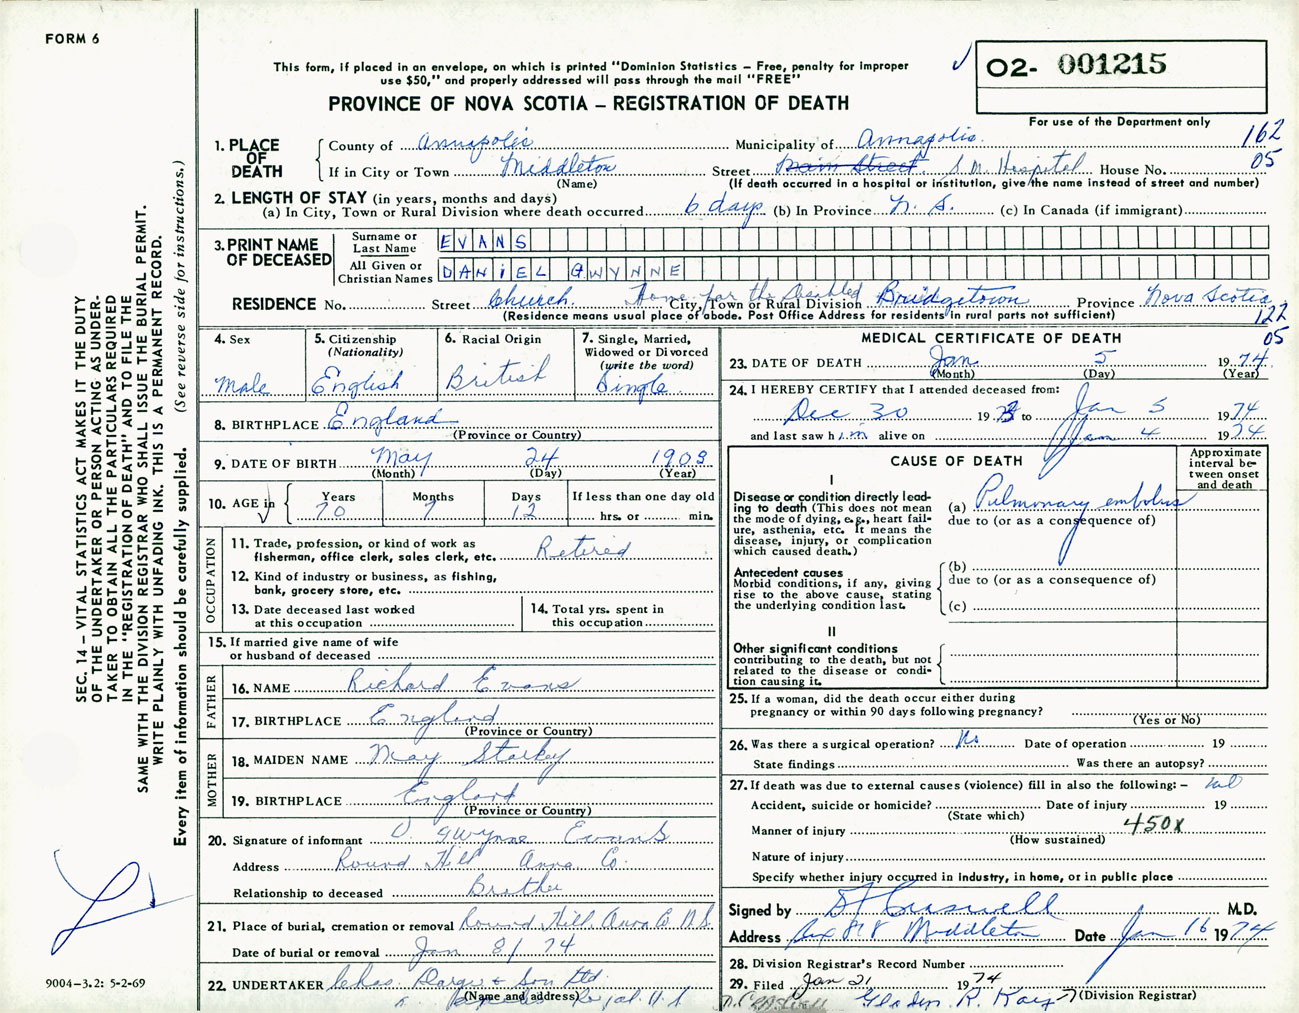 FORM 6
This form, if placed in an envelope, on which is printed "Dominion Statistics - Free, penalty for improper
use $50," and properly addressed will pass through the mail "FREE"
PROVINCE OF NOVA SCOTIA – REGISTRATION OF DEATH
02- 001215
For use of the Department only
162
05
1. PLACE OF DEATH County of Annapolis Municipality of Annapolis
If in City or Town Middleton Street Main Street S. M. Hospital House No.
(Name) (If death occurred in a hospital or institution, give the name instead of street and number)
2. LENGTH OF STAY (in years, months and days)
(a) In City, Town or Rural Division where death occurred 6 days (b) In Province N. S. (c) In Canada (if immigrant)
3. PRINT NAME OF DECEASED
Surname or Last Name EVANS
All Given or Christian Names DANIEL GWYNNE
RESIDENCE No. Street Church. Home for the Disabled City, Town or Rural Division Bridgetown Province Nova Scotia
(Residence means usual place of abode. Post Office Address for residents in rural parts not sufficient)
122
05
4. Sex Male
5. Citizenship (Nationality) English
6. Racial Origin British
7. Single, Married, Widowed or Divorced (write the word) Single
8. BIRTHPLACE England
(Province or Country)
9. DATE OF BIRTH May 24 1903
(Month) (Day) (Year)
10. AGE in Years 70 Months 7 Days 12 If less than one day old
hrs. or min.
OCCUPATION
11. Trade, profession, or kind of work as
fisherman, office clerk, sales clerk, etc. Retired
12. Kind of industry or business, as fishing,
bank, grocery store, etc.
13. Date deceased last worked
at this occupation
14. Total yrs. spent in
this occupation
15. If married give name of wife
or husband of deceased
FATHER
16. NAME Richard Evans
17. BIRTHPLACE England
(Province or Country)
MOTHER
18. MAIDEN NAME May Starkey
19. BIRTHPLACE England
(Province or Country)
20. Signature of informant D. Gwynne Evans
Address Round Hill Anna. Co.
Relationship to deceased Brother
21. Place of burial, cremation or removal Round Hill Anna Co N.S.
Date of burial or removal Jan 8/74
22. UNDERTAKER Chas. & Son Ltd.
(Name and address)
MEDICAL CERTIFICATE OF DEATH
23. DATE OF DEATH Jan 5 1974
(Month) (Day) (Year)
24. I HEREBY CERTIFY that I attended deceased from:
Dec 30 1973 to Jan 5 1974
and last saw him alive on Jan 4 1974
CAUSE OF DEATH
Approximate
interval be-
tween onset
and death
I
Disease or condition directly lead-
ing to death (This does not mean
the mode of dying, e.g., heart fail-
ure, asthenia, etc. It means the
disease, injury, or complication
which caused death.)
(a) Pulmonary embolus
due to (or as a consequence of)
Antecedent causes
Morbid conditions, if any, giving
rise to the above cause, stating
the underlying condition last.
(b)
due to (or as a consequence of)
(c)
II
Other significant conditions
contributing to the death, but not
related to the disease or condi-
tion causing it.
25. If a woman, did the death occur either during
pregnancy or within 90 days following pregnancy?
(Yes or No)
26. Was there a surgical operation? No Date of operation 19
State findings Was there an autopsy?
27. If death was due to external causes (violence) fill in also the following: –
Accident, suicide or homicide? Date of injury 19
(State which)
Manner of injury 450X
(How sustained)
Nature of injury
Specify whether injury occurred in industry, in home, or in public place
Signed by Cruswell M.D.
Address Box Middleton Date Jan 16 1974
28. Division Registrar's Record Number
29. Filed Jan 21 1974
Gladys R. Kay (Division Registrar)
SEC. 14 – VITAL STATISTICS ACT MAKES IT THE DUTY
OF THE UNDERTAKER OR PERSON ACTING AS UNDER-
TAKER TO OBTAIN ALL THE PARTICULARS REQUIRED
IN THE "REGISTRATION OF DEATH" AND TO FILE THE
SAME WITH THE DIVISION REGISTRAR WHO SHALL ISSUE THE BURIAL PERMIT.
WRITE PLAINLY WITH UNFADING INK. THIS IS A PERMANENT RECORD.
Every item of information should be carefully supplied. (See reverse side for instructions.)
9004-3.2: 5-2-69